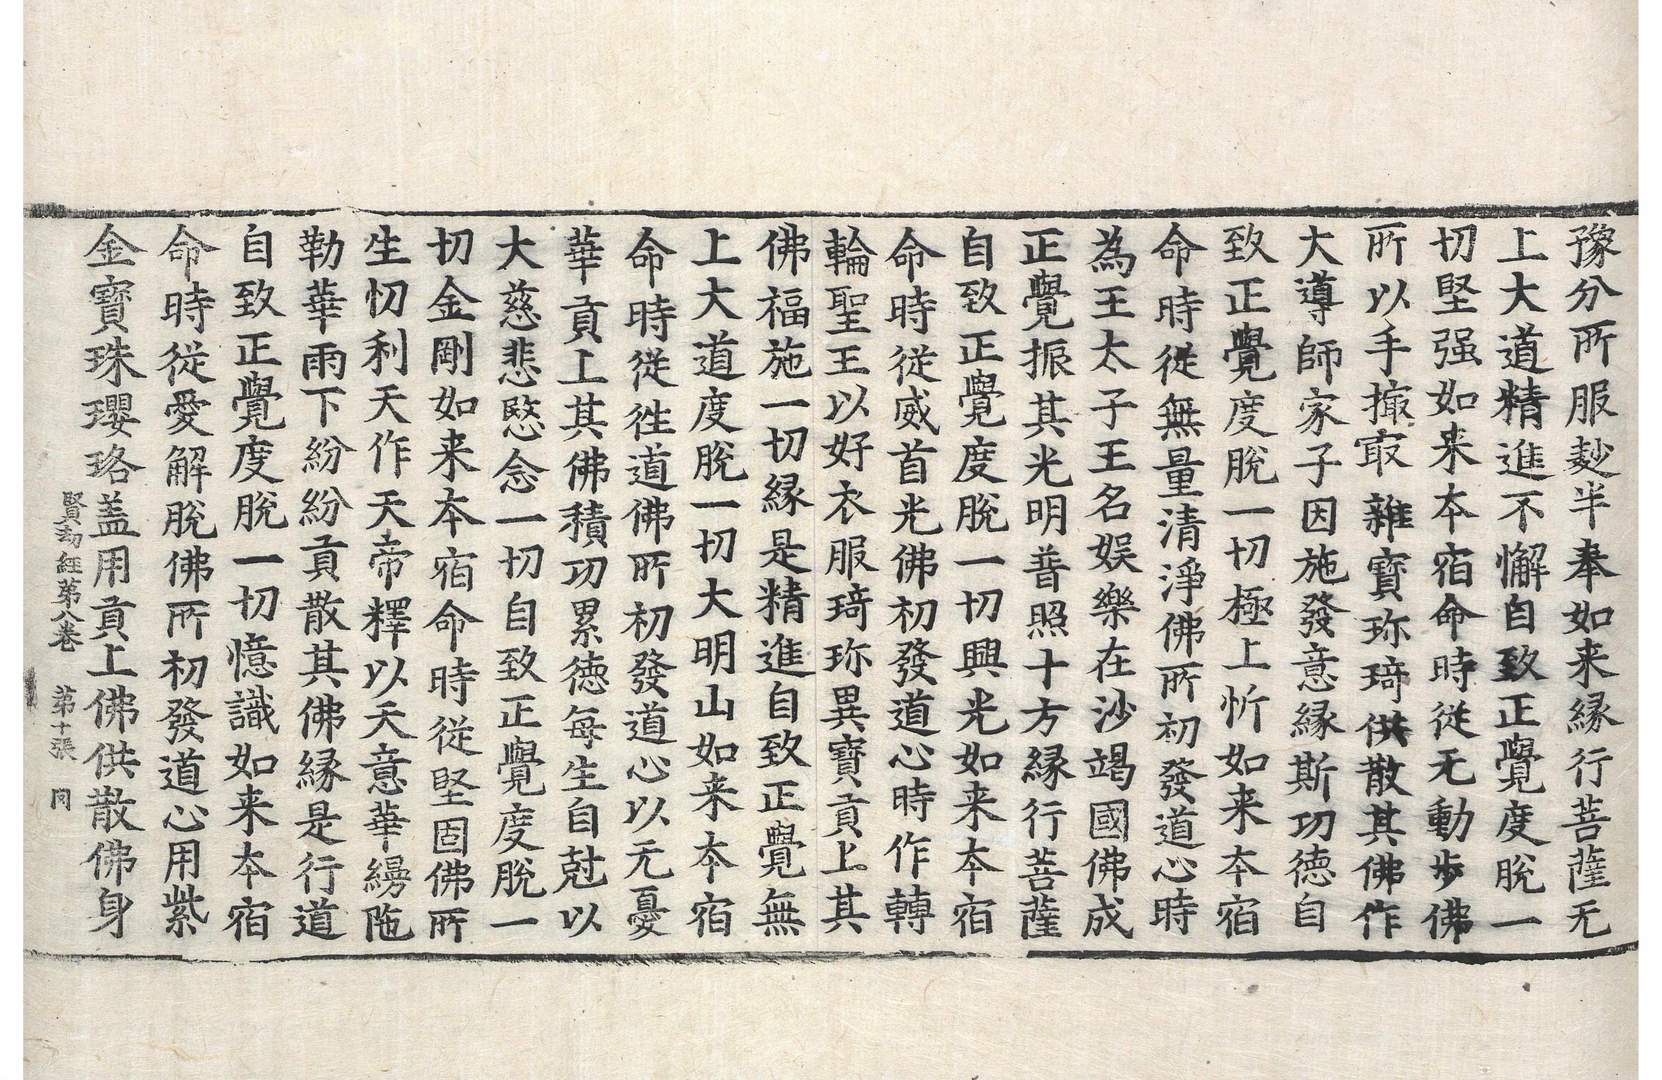 豫分所服麨半奉如来縁行菩薩无
上大道精進不懈自致正覺度脫一
切堅强如来本宿命時從无動步佛
所以手撮取雜寶珎琦供散其佛作
大導師家子因施發意縁斯功德自
致正覺度脫一切極上忻如来本宿
命時從無量清淨佛所初發道心時
為王太子王名娛樂在沙竭國佛成
正覺振其光明普照十方縁行菩薩
自致正覺度脫一切興光如来本宿
命時從威首光佛初發道心時作轉
輪聖王以好衣服琦珎異寶貢上其
佛福施一切縁是精進自致正覺無
上大道度脫一切大明山如来本宿
命時從徃道佛所初發道心以无憂
華貢上其佛積功累德每生自尅以
大慈悲愍念一切自致正覺度脫一
切金剛如来本宿命時從堅固佛所
生忉利天作天帝釋以天意華縵陁
勒華雨下紛紛貢散其佛縁是行道
自致正覺度脫一切憶識如来本宿
命時從愛解脫佛所初發道心用紫
金寶珠瓔珞盖用貢上佛供散佛身
賢劫經第八卷 第十張 同